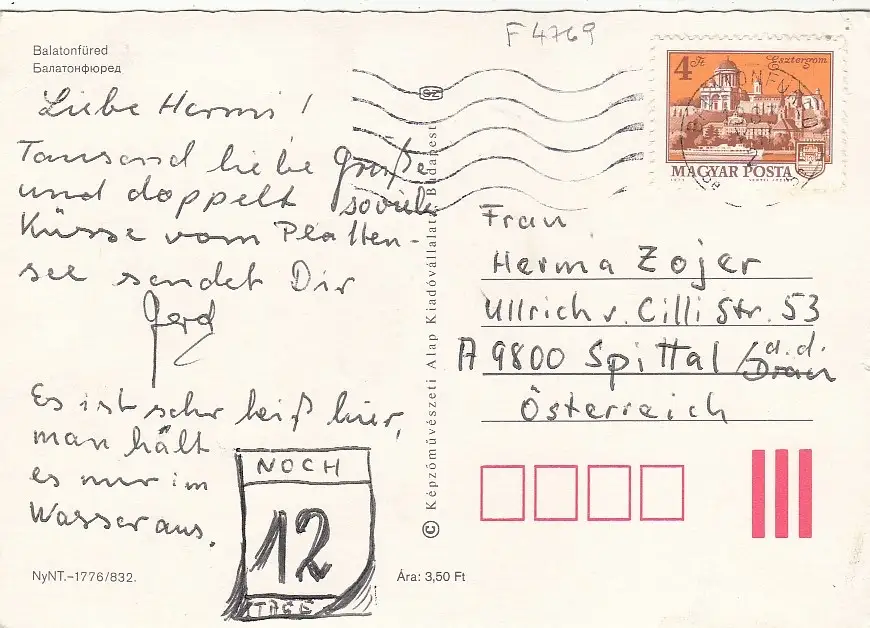 F 4769
Balatonfüred
Балатонфюред
Liebe Hermi!
Tausend liebe Grüße
und doppelt soviele
Küsse vom Platten-
see sendet Dir
Gerd
Es ist sehr heiß hier,
man hält
es nur im
Wasser aus.
NOCH
12
TAGE
NyNT.–1776/832.
Ára: 3,50 Ft
© Képzőművészeti Alap Kiadóvállalata, Budapest
4 Ft
Esztergom
MAGYAR POSTA
Frau
Herma Zojer
Ullrich v. Cilli Str. 53
A 9800 Spittal / a.d.
Drau
Österreich